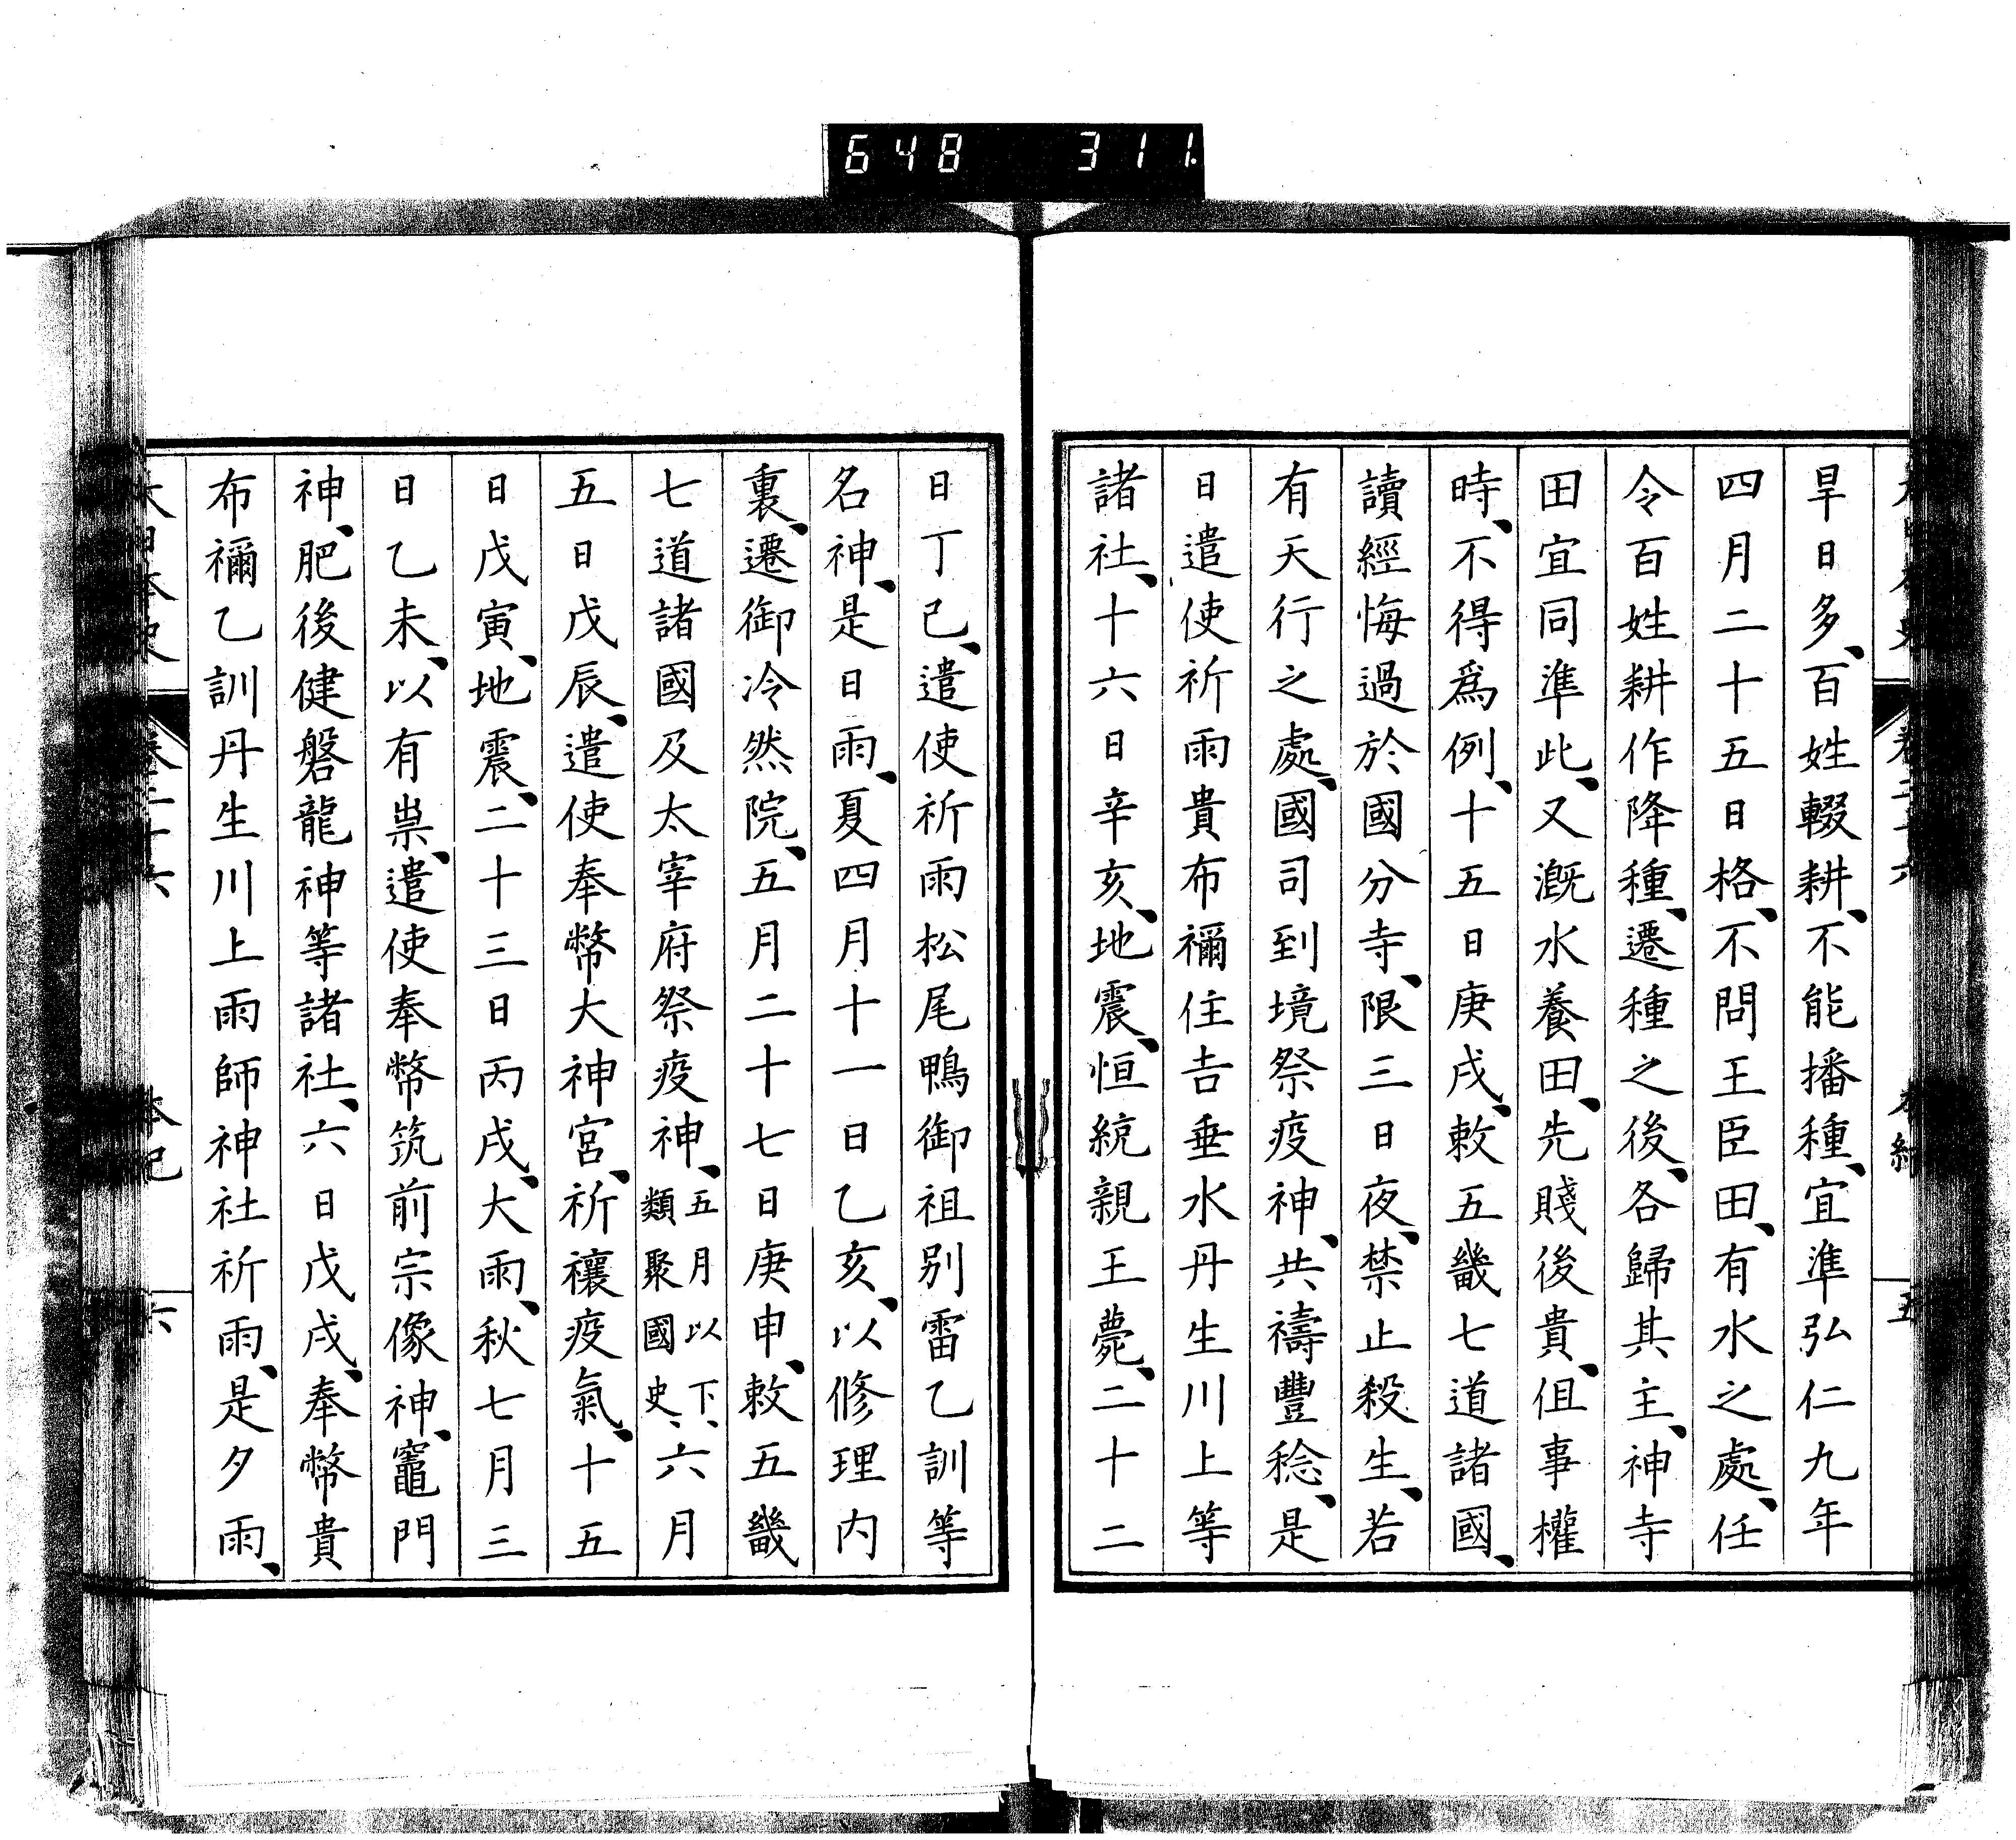 648 311.
旱日多、百姓輟耕、不能播種、宜準弘仁九年
四月二十五日格、不問王臣田、有水之處、任
令百姓耕作降種、遷種之後、各歸其主、神寺
田宜同準此、又漑水養田、先賤後貴、但事權
時、不得爲例、十五日庚戌、敕五畿七道諸國、
讀經悔過於國分寺、限三日夜、禁止殺生、若
有天行之處、國司到境祭疫神、共禱豐稔、是
日遣使祈雨貴布禰住吉垂水丹生川上等
諸社、十六日辛亥、地震、恒統親王薨、二十二
五
日丁巳、遣使祈雨松尾鴨御祖別雷乙訓等
名神、是日雨、夏四月十一日乙亥、以修理内
裏、遷御冷然院、五月二十七日庚申、敕五畿
七道諸國及太宰府祭疫神、五月以下、類聚國史、六月
五日戊辰、遣使奉幣大神宮、祈禳疫氣、十五
日戊寅、地震、二十三日丙戌、大雨、秋七月三
日乙未、以有祟、遣使奉幣筑前宗像神、竈門
神、肥後健磐龍神等諸社、六日戊戌、奉幣貴
布禰乙訓丹生川上雨師神社祈雨、是夕雨、
大日本史 卷二十六 本紀 六